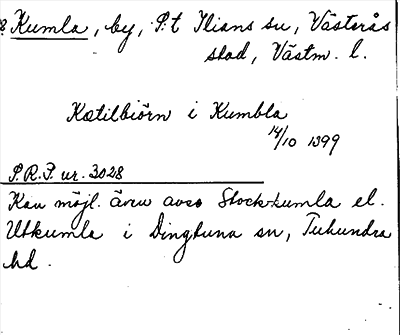 ? Kumla, by, S:t Ilians sn, Västerås
stad, Västm. l.
Kætilbiörn i Kumbla
14/10 1399
S.R.P. nr. 3028
Kan möjl. även avse Stockkumla el.
Utkumla i Dingtuna sn, Tuhundra
hd.